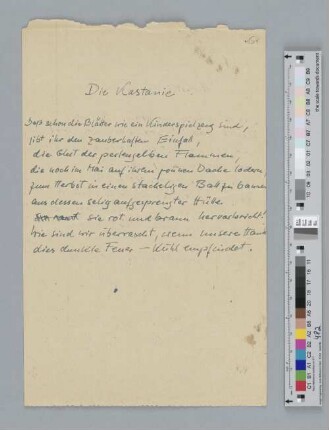 Die Kastanie
Dass schon die Blätter wie ein Kinderspielzeug sind,
gibt ihr den zauberhaften Einfall,
die Glut der perlengelben Flammen,
die noch im Mai auf ihren grünen Dache lodern
zum Herbst in einen stacheligen Ball zu bannen
aus dessen selig aufgesprengter Hülse
sie rot und braun hervorbricht.
Wie sind wir überrascht, wenn unsere Hand
dies dunkle Feuer – kühl empfindet.